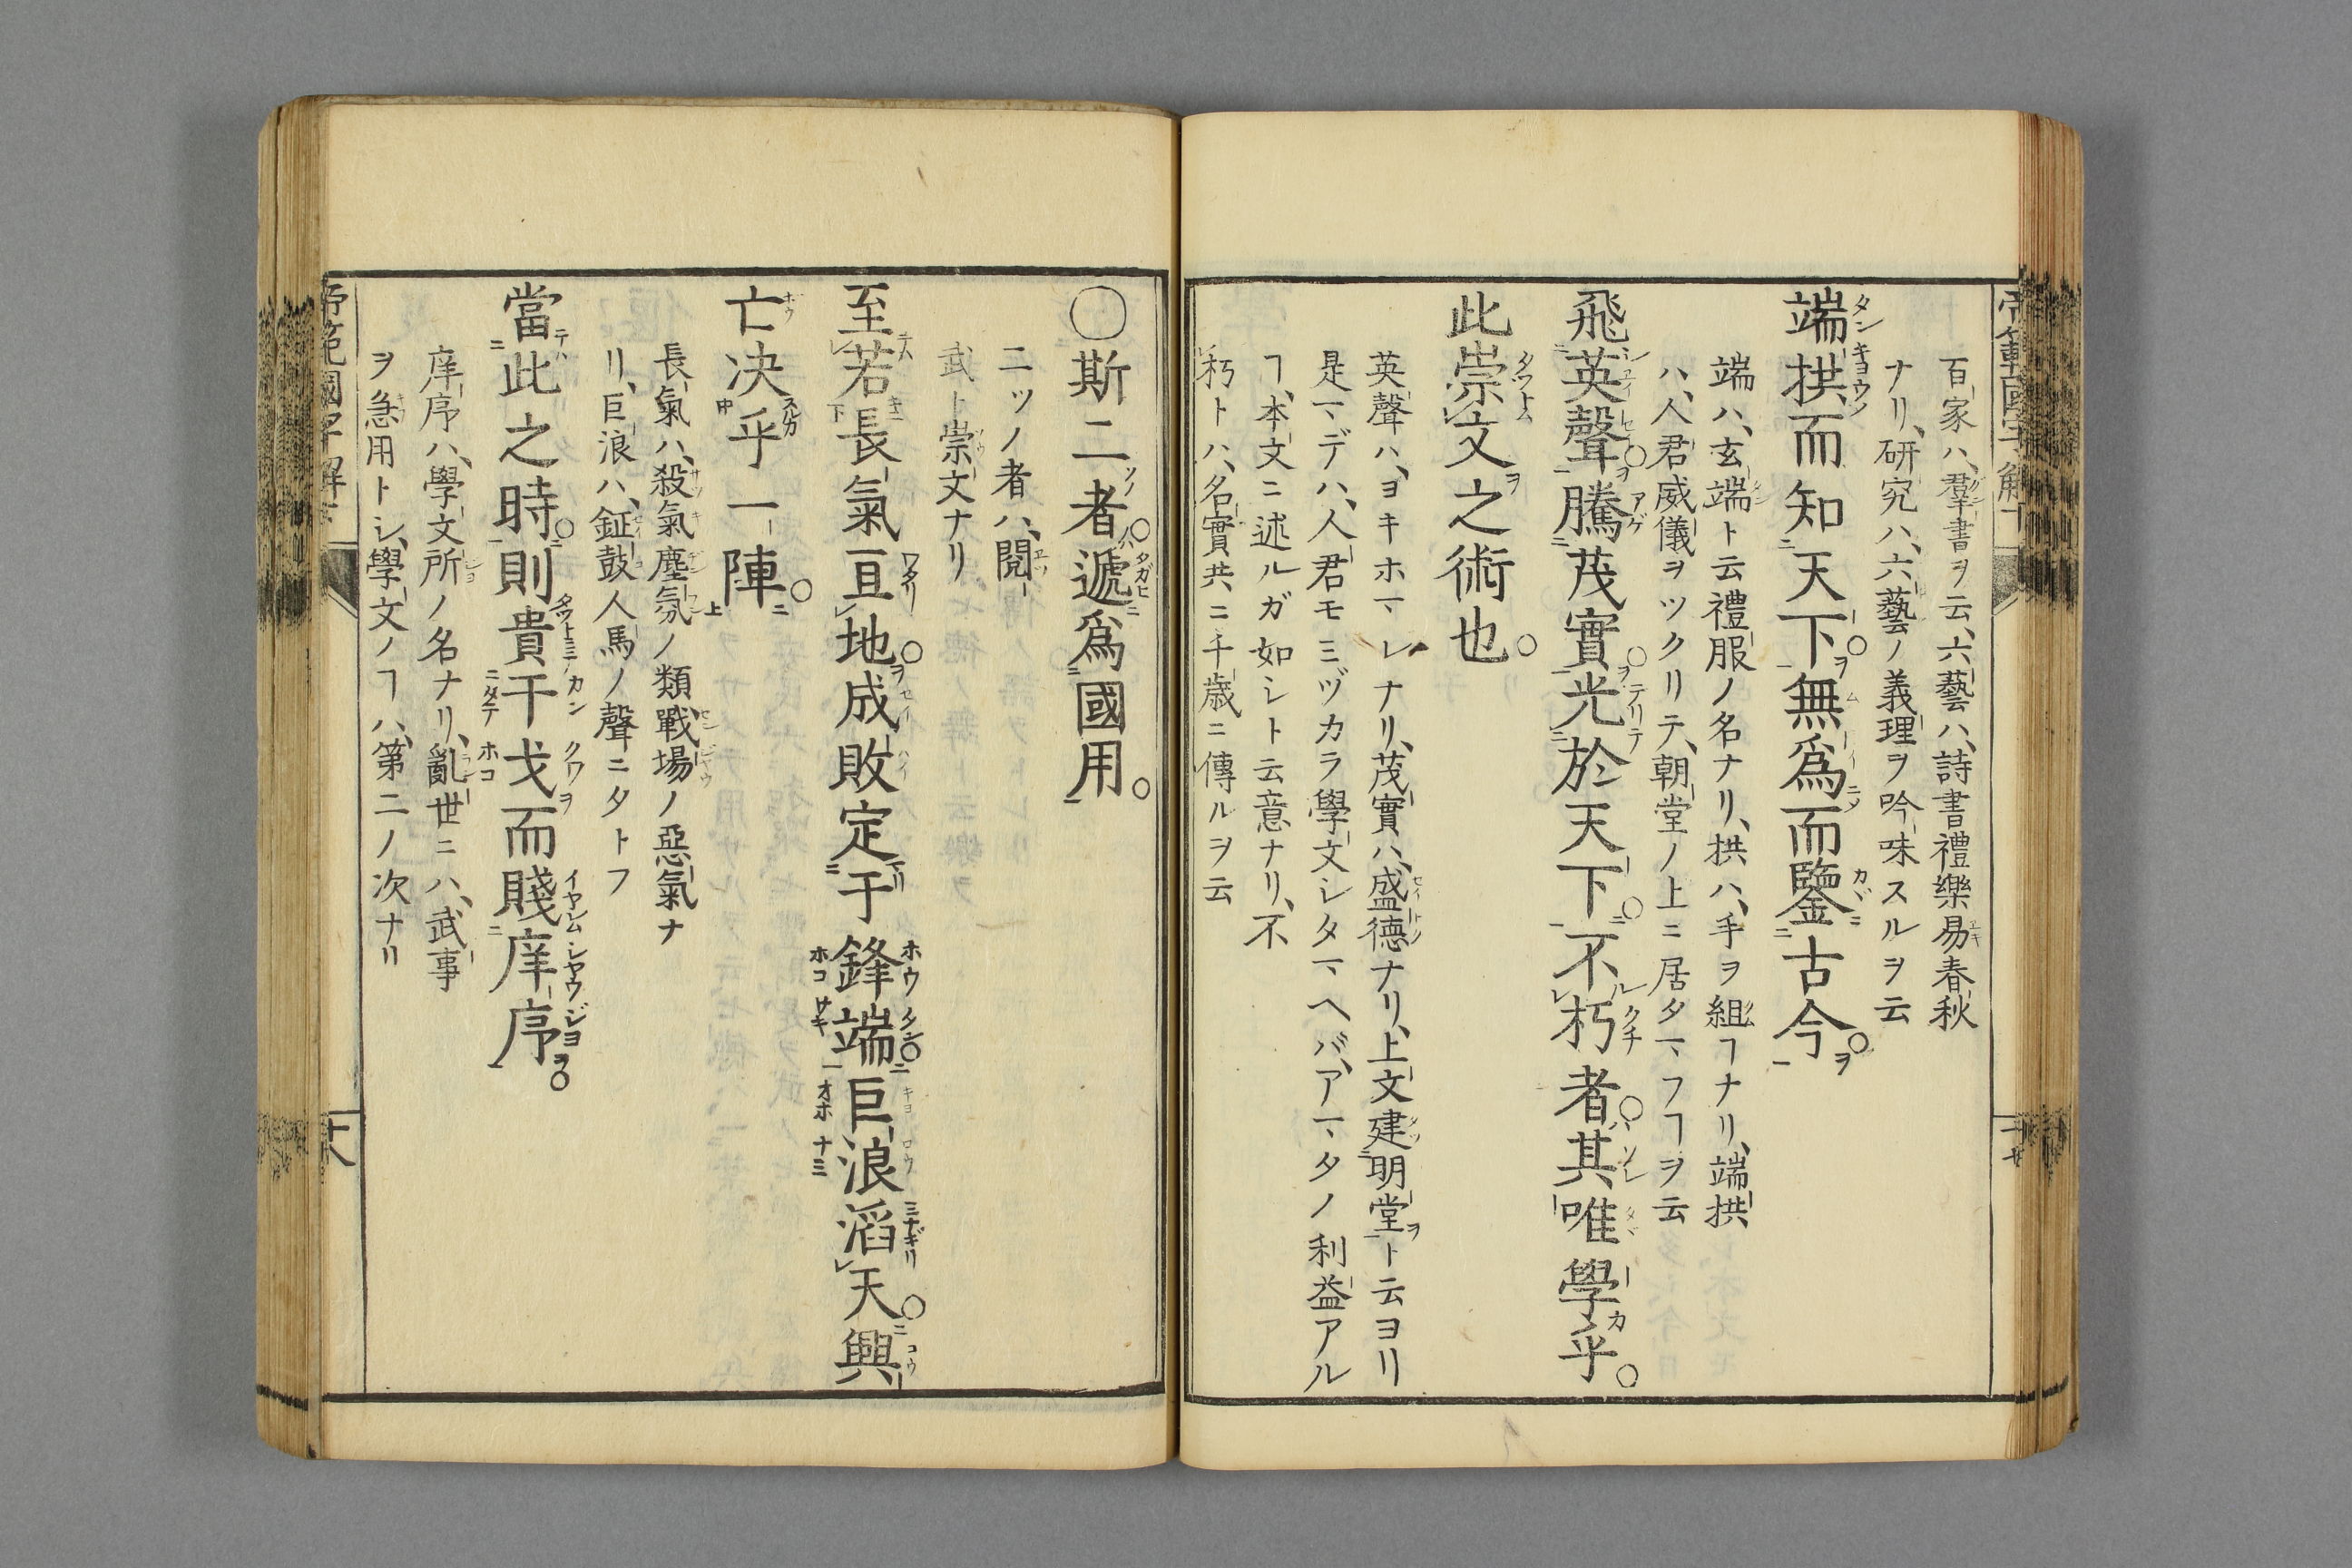 百家ハ、羣書ヲ云、六藝ハ、詩書禮樂易春秋
ナリ、研究ハ、六藝ノ義理ヲ吟味スルヲ云
端拱而知天下。無爲而鑒古今。
端ハ、玄端ト云禮服ノ名ナリ、拱ハ、手ヲ組ヿナリ、端拱
ハ、人君威儀ヲツクリテ、朝堂ノ上ニ居タマフヿヲ云
飛英聲。騰茂實。光於天下。不朽者。其唯學乎。
此崇文之術也。
英聲ハ、ヨキホマレナリ、茂實ハ、盛德ナリ、上文建明堂ト云ヨリ
是マデハ、人君モミヅカラ學文シタマヘバ、アマタノ利益アル
ヿ、本文ニ述ルガ如シト云意ナリ、不
朽トハ、名實共ニ千歳ニ傳ルヲ云
〇斯二者。遞爲國用。
二ツノ者ハ、閲
武ト崇文ナリ
至若長氣亘地。成敗定于鋒端。巨浪滔天。興
亡決乎一陣。
長氣ハ、殺氣塵氛ノ類、戰場ノ惡氣ナ
リ、巨浪ハ、鉦鼓人馬ノ聲ニタトフ
當此之時。則貴干戈而賤庠序。
庠序ハ、學文所ノ名ナリ、亂世ニハ、武事
ヲ急用トシ、學文ノヿハ、第二ノ次ナリ
帝範國字解下